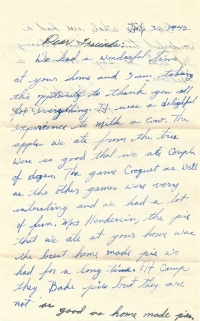 1942
Dear Friends:
We had a wonderful time
at your home and I am taking
this oportunity to thank you all
for everything. It was a delightful
experience to milk a cow. The
apples we ate from the tree
were so good that we ate couple
of dozen. The game Croquet as well
as the other games were very
interesting and we had a lot
of fun. Mrs Henderson, the pie
that we ate at your home was
the best home made pie we
had for a long time. At Camp
they Bake pies but they are
not as good as home made pies.